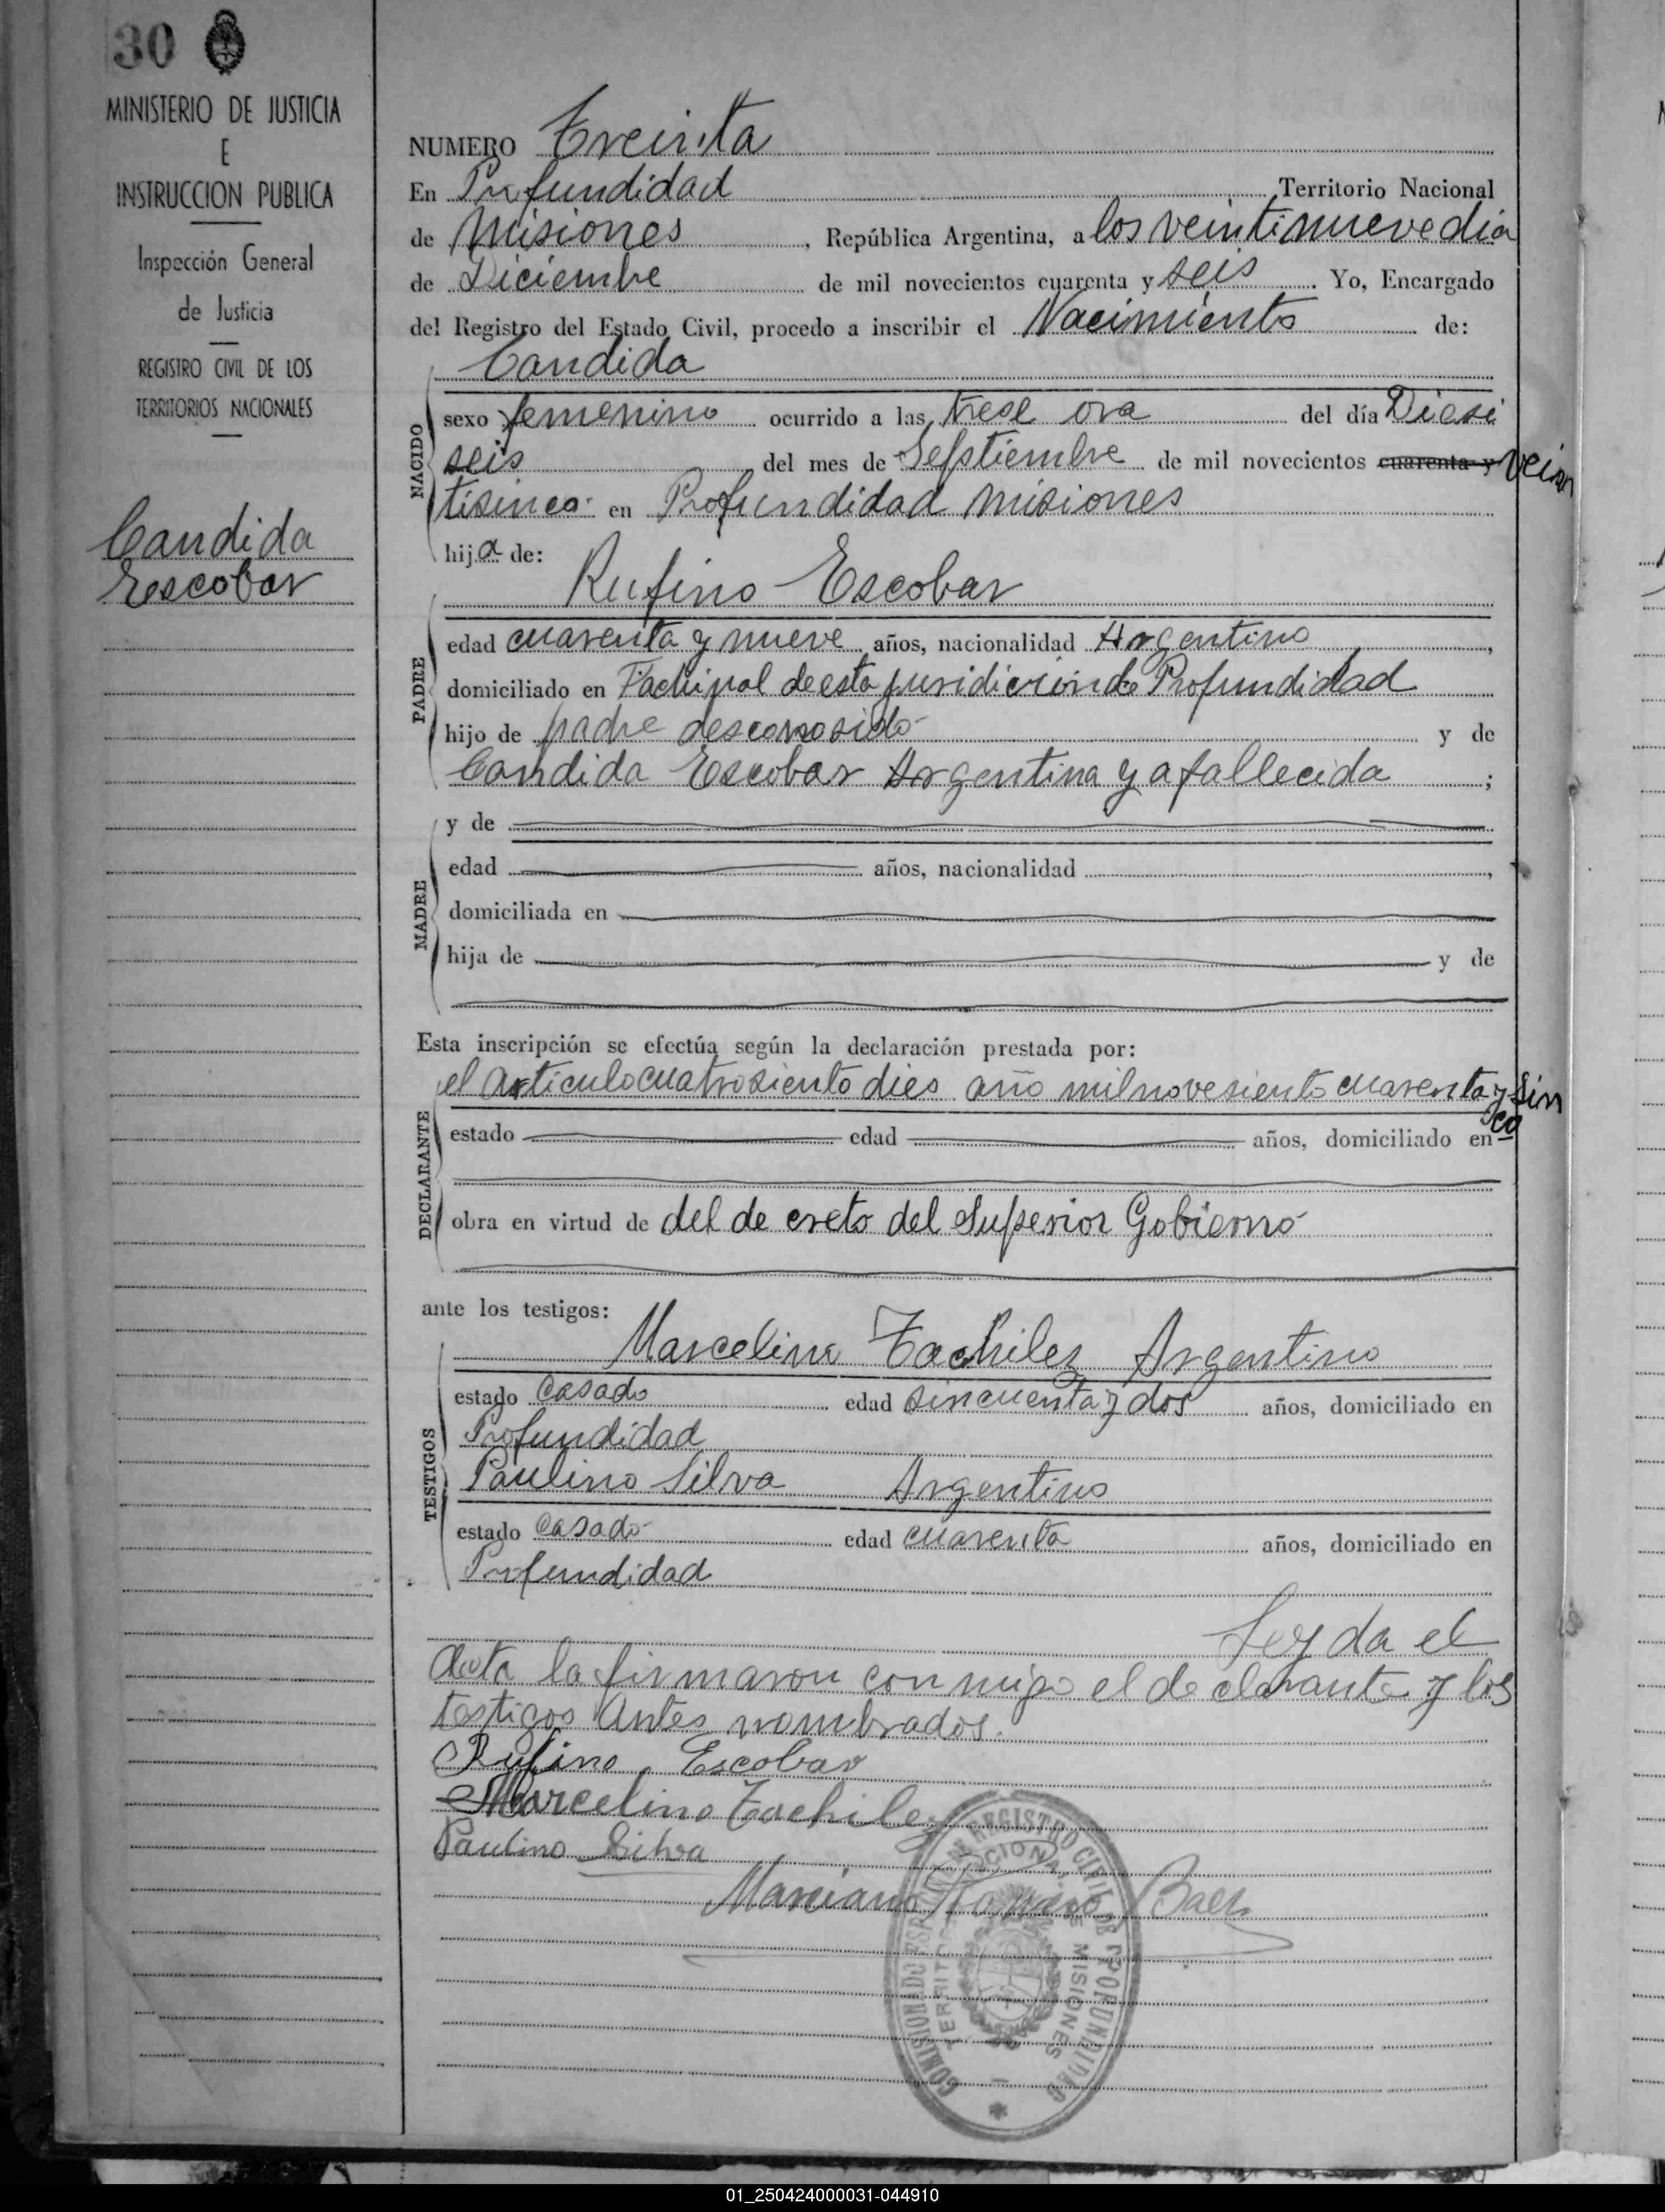 30
MINISTERIO DE JUSTICIA
E
INSTRUCCION PUBLICA
Inspección General
de Justicia
REGISTRO CIVIL DE LOS
TERRITORIOS NACIONALES
Candida
Escobar
NUMERO Treinta
En Profundidad Territorio Nacional
de Misiones, República Argentina, a los veintinueve dia
de Diciembre de mil novecientos cuarenta y seis. Yo, Encargado
del Registro del Estado Civil, procedo a inscribir el Nacimiento de:
Candida
NACIDO
sexo femenino ocurrido a las trese ora del día Diesi
seis del mes de Sepstiembre de mil novecientos cuarenta y vein
tisinco en Profundidad Misiones
hija de:
Rufino Escobar
PADRE
edad cuarenta y nueve años, nacionalidad Argentino,
domiciliado en Fachinal de esta juridicion de Profundidad
hijo de padre desconosido y de
Candida Escobar Argentina y a fallecida;
MADRE
y de
edad años, nacionalidad,
domiciliada en
hija de y de
Esta inscripción se efectúa según la declaración prestada por:
el articulo cuatrosiento dies año mil novesiento cuarenta y sin
co
DECLARANTE
estado edad años, domiciliado en
obra en virtud de del de creto del Superior Gobierno
ante los testigos:
TESTIGOS
Marcelino Tachilez Argentino
estado casado edad sincuenta y dos años, domiciliado en
Profundidad
Paulino Silva Argentino
estado casado edad cuarenta años, domiciliado en
Profundidad
Leyda el
Acta la firmaron con migo el de clarante y los
testigos Antes nombrados.
Rufino Escobar
Marcelino Tachilez
Paulino Silva
Marciano Romero Baez
REGISTRO CIVIL DE PROFUNDIDAD
MISIONES
01_250424000031-044910